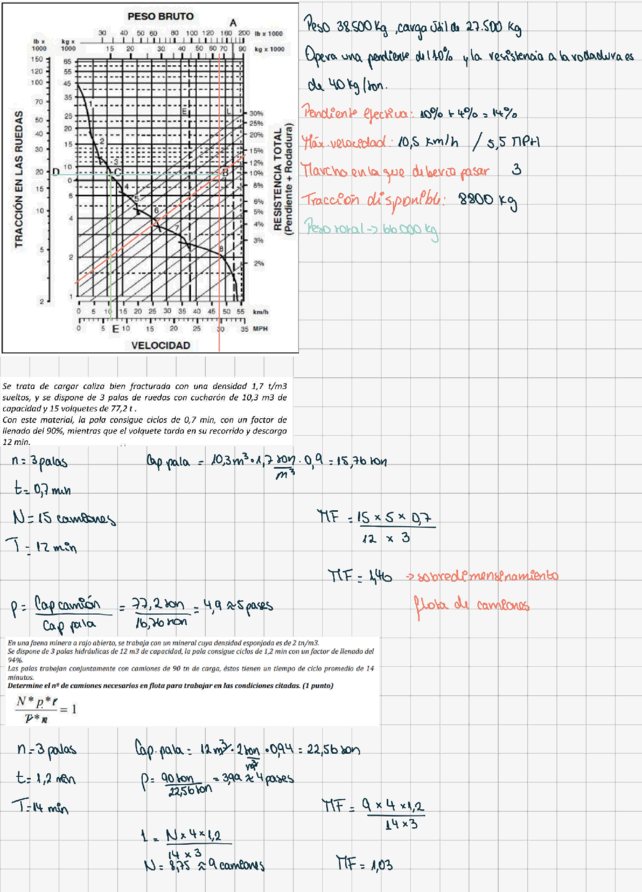 PESO BRUTO
A
30 40 60 80 100 120 160 200 lb x 1000
15 20 30 40 50 60 70 90 kg x 1000
lb x 1000
kg x 1000
TRACCIÓN EN LAS RUEDAS
RESISTENCIA TOTAL
(Pendiente + Rodadura)
30%
25%
20%
15%
10%
8%
6%
5%
4%
3%
2%
D
C
B
E
L
0 5 10 15 20 25 30 35 40 45 50 55 km/h
0 5 10 15 20 25 30 35 MPH
E
VELOCIDAD
Peso 38500 kg, carga útil de 27.500 kg
Opera una pendiente del 10% y la resistencia a la rodadura es
de 40 kg/ton.
Pendiente efectiva: 10% + 4% = 14%
Máx velocidad: 10,5 km/h / 5,5 MPH
Marcha en la que debería pasar 3
Tracción disponible: 8800 kg
Peso total -> 66000 kg
Se trata de cargar caliza bien fracturada con una densidad 1,7 t/m3
sueltos, y se dispone de 3 palas de ruedas con cucharón de 10,3 m3 de
capacidad y 15 volquetes de 77,2 t .
Con este material, la pala consigue ciclos de 0,7 min, con un factor de
llenado del 90%, mientras que el volquete tarda en su recorrido y descarga
12 min.
n = 3 palas
Cap pala = 10,3 m³ · 1,7 ton/m³ · 0,9 = 15,76 ton
t = 0,7 min
N = 15 camiones
MF = 15 x 5 x 0,7 / 12 x 3
T = 12 min
MF = 1,46 -> sobredimensinamiento
flota de camiones
P = Cap camión / Cap pala = 77,2 ton / 15,76 ton = 4,9 ≈ 5 pases
En una faena minera a rajo abierto, se trabaja con un mineral cuya densidad esponjada es de 2 tn/m3.
Se dispone de 3 palas hidráulicas de 12 m3 de capacidad, la pala consigue ciclos de 1,2 min con un factor de llenado del
94%.
Las palas trabajan conjuntamente con camiones de 90 tn de carga, éstos tienen un tiempo de ciclo promedio de 14
minutos.
Determine el nº de camiones necesarios en flota para trabajar en las condiciones citadas. (1 punto)
N * p * t / T * n = 1
n = 3 palas
Cap. pala = 12 m³ · 2 ton/m³ · 0,94 = 22,56 ton
t = 1,2 min
P = 90 ton / 22,56 ton = 3,99 ≈ 4 pases
T = 14 min
MF = 9 x 4 x 1,2 / 14 x 3
1 = N x 4 x 1,2 / 14 x 3
N = 8,75 ≈ 9 camiones
MF = 1,03